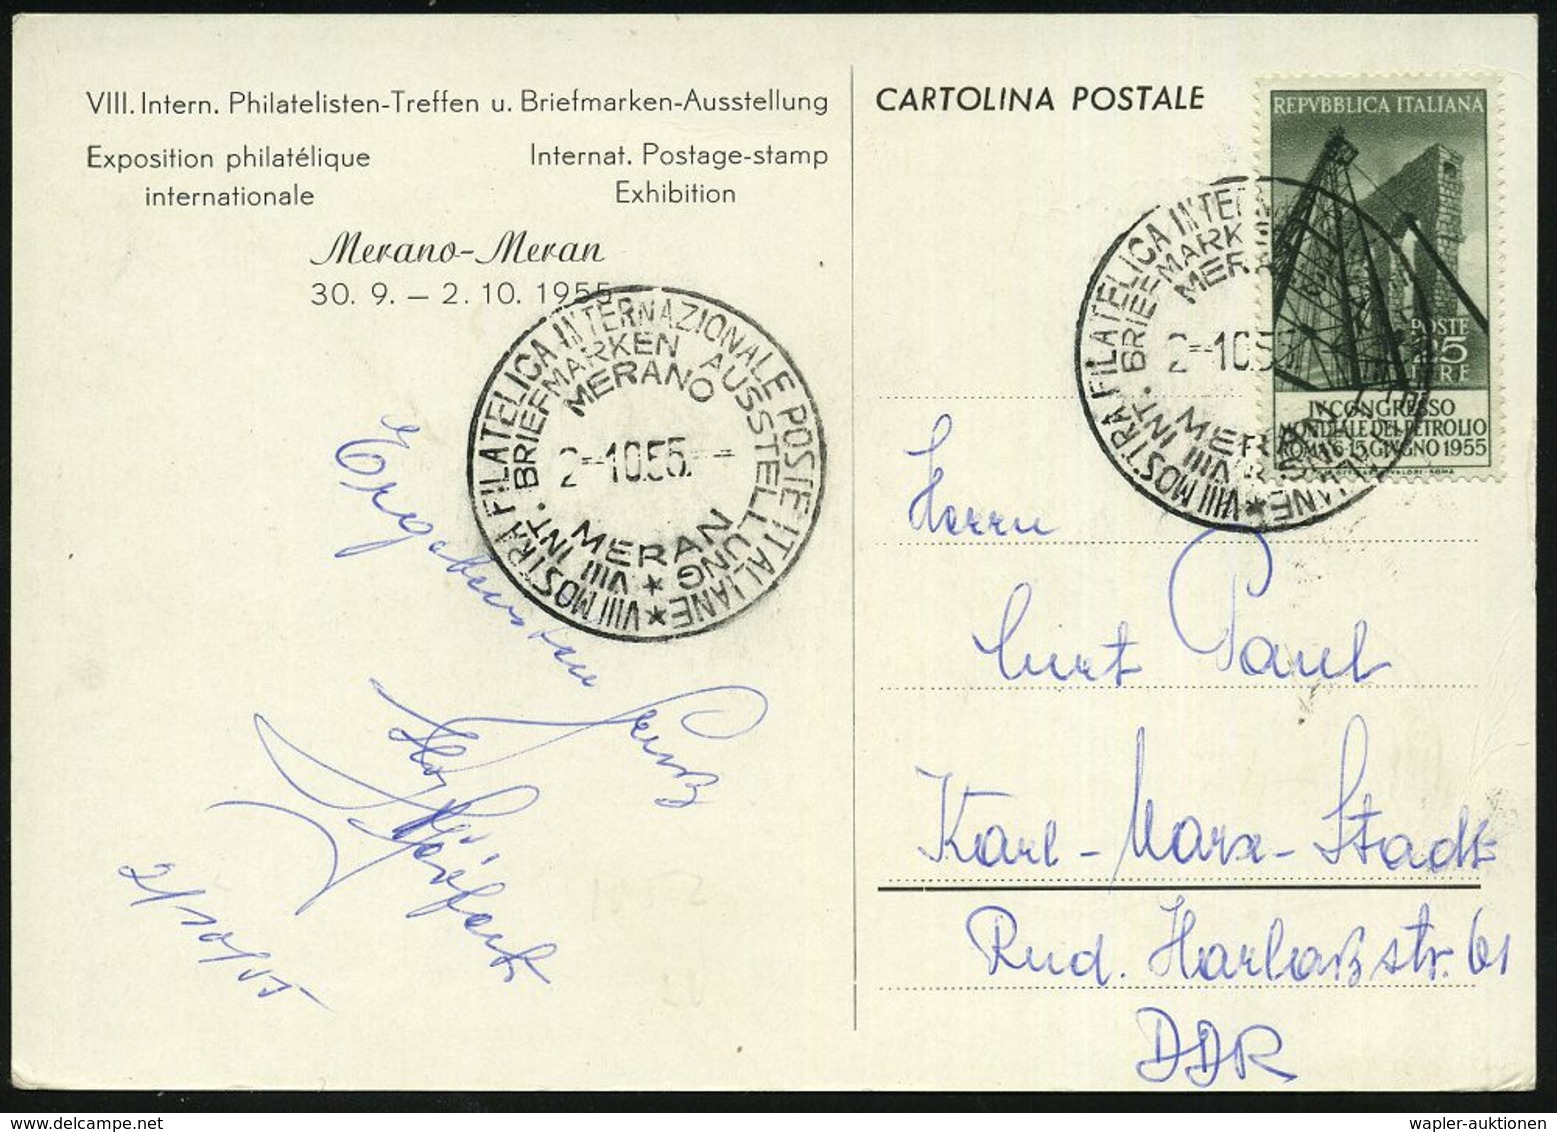 VIII. Intern. Philatelisten-Treffen u. Briefmarken-Ausstellung
Exposition philatélique
internationale
Internat. Postage-stamp
Exhibition
Merano-Meran
30. 9. – 2. 10. 1955
VIII MOSTRA FILATELICA INTERNAZIONALE POSTE ITALIANE ★
VIII INT. BRIEFMARKEN AUSSTELLUNG ★
MERANO
2-10.55.
MERAN
Ergebensten Gruß
2/10/55
CARTOLINA POSTALE
REPVBBLICA ITALIANA
POSTE
25
LIRE
IV CONGRESSO
MONDIALE DEL PETROLIO
ROMA 6-15 GIVGNO 1955
VIII MOSTRA FILATELICA INTER
INT. BRIEFMARK
MERA
2-10.5
MERAN
VIII
Herrn
Curt Paul
Karl-Marx-Stadt
Rud. Harlaßstr. 61
DDR
wapler-auktionen